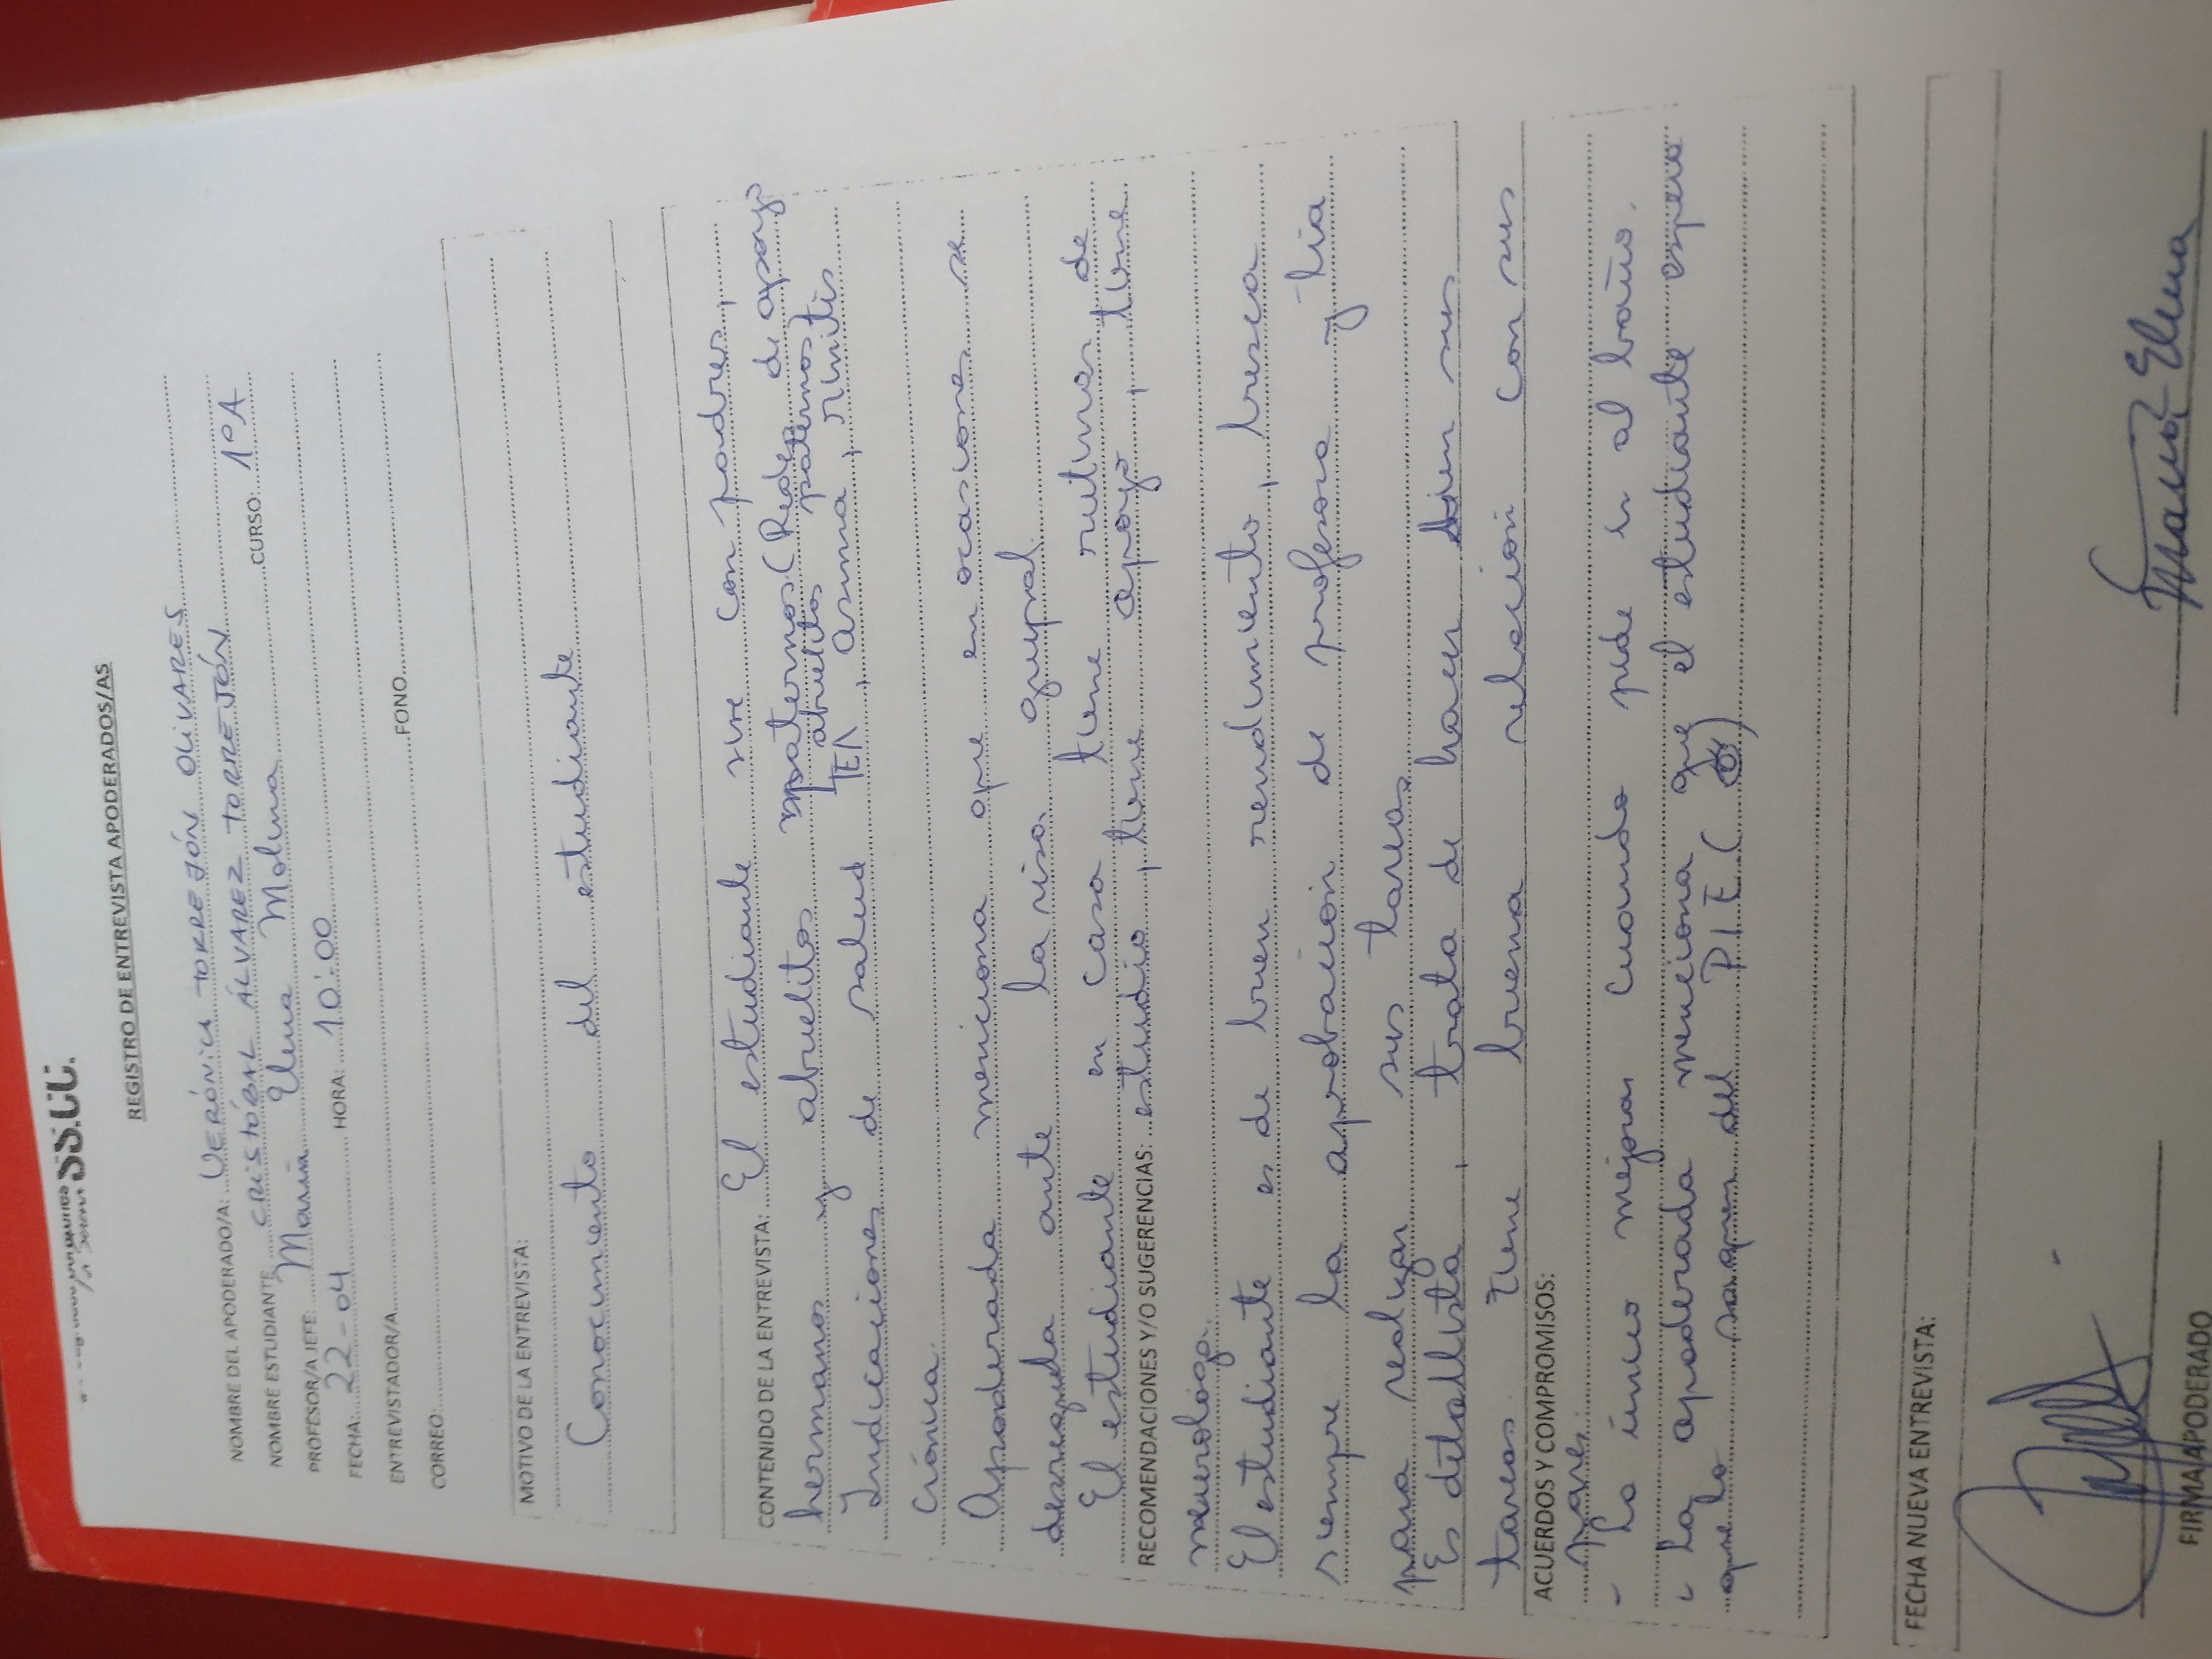 REGISTRO DE ENTREVISTA APODERADOS/AS
NOMBRE DEL APODERADO/A: VERÓNICA TORREJÓN OLIVARES
NOMBRE ESTUDIANTE CRISTÓBAL ÁLVAREZ TORREJÓN CURSO: 1°A
PROFESOR/A JEFE: María Elena Molina
FECHA: 22-04 HORA: 10:00
ENTREVISTADOR/A
CORREO: FONO
MOTIVO DE LA ENTREVISTA:
Conocimiento del estudiante
CONTENIDO DE LA ENTREVISTA: El estudiante vive con padres,
hermanos y abuelitos maternos (Redes de apoyo
abuelitos paternos)
Indicaciones de salud TEA, asma, rinitis
crónica.
Apoderada menciona que en ocasiones se
desregula ante la risa grupal.
El estudiante en casa tiene rutinas de
RECOMENDACIONES Y/O SUGERENCIAS: estudio, tiene apoyo, tiene
neurólogo.
El estudiante es de buen rendimiento, busca
siempre la aprobación de profesora y tía
para realizar sus tareas.
Es detallista, trata de hacer bien sus
tareas. Tiene buena relación con sus
ACUERDOS Y COMPROMISOS:
pares.
- Lo único mejorar cuando pide ir al baño.
- La apoderada menciona que el estudiante espera
que lo saquen del P.I.E (
FECHA NUEVA ENTREVISTA:
María Elena
FIRMA APODERADO